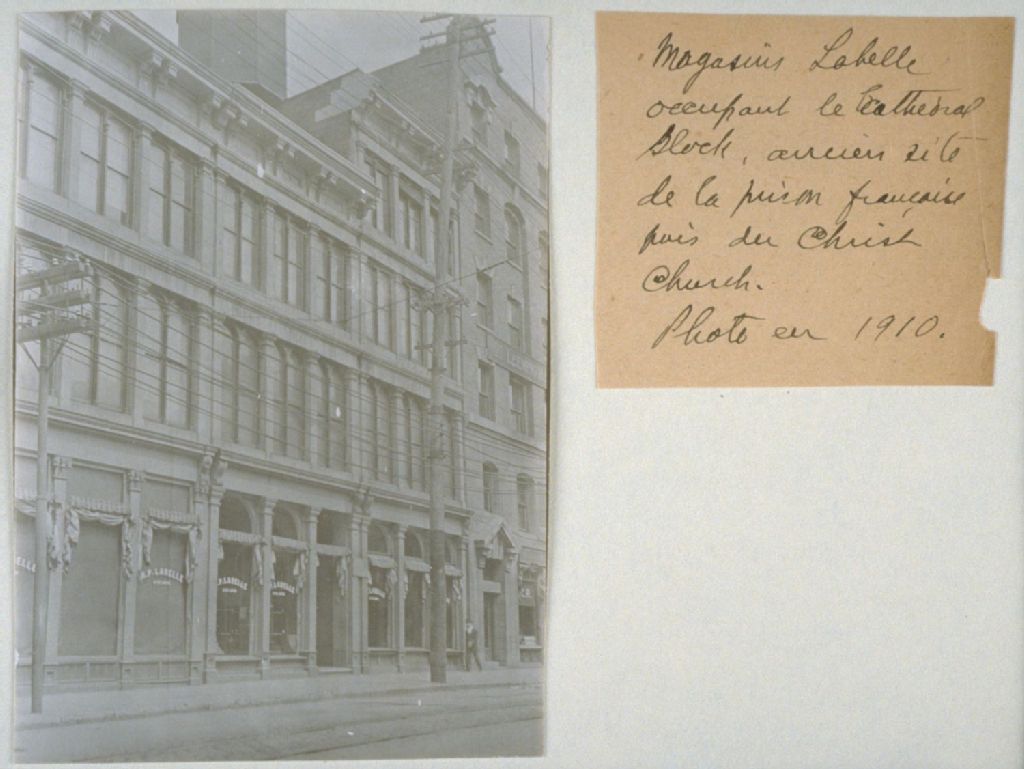 Magasins Labelle
occupant le Cathedral
Block, ancien site
de la prison française
puis du Christ
Church.
Photo en 1910.
LABELLE
P. LABELLE
LABELLE